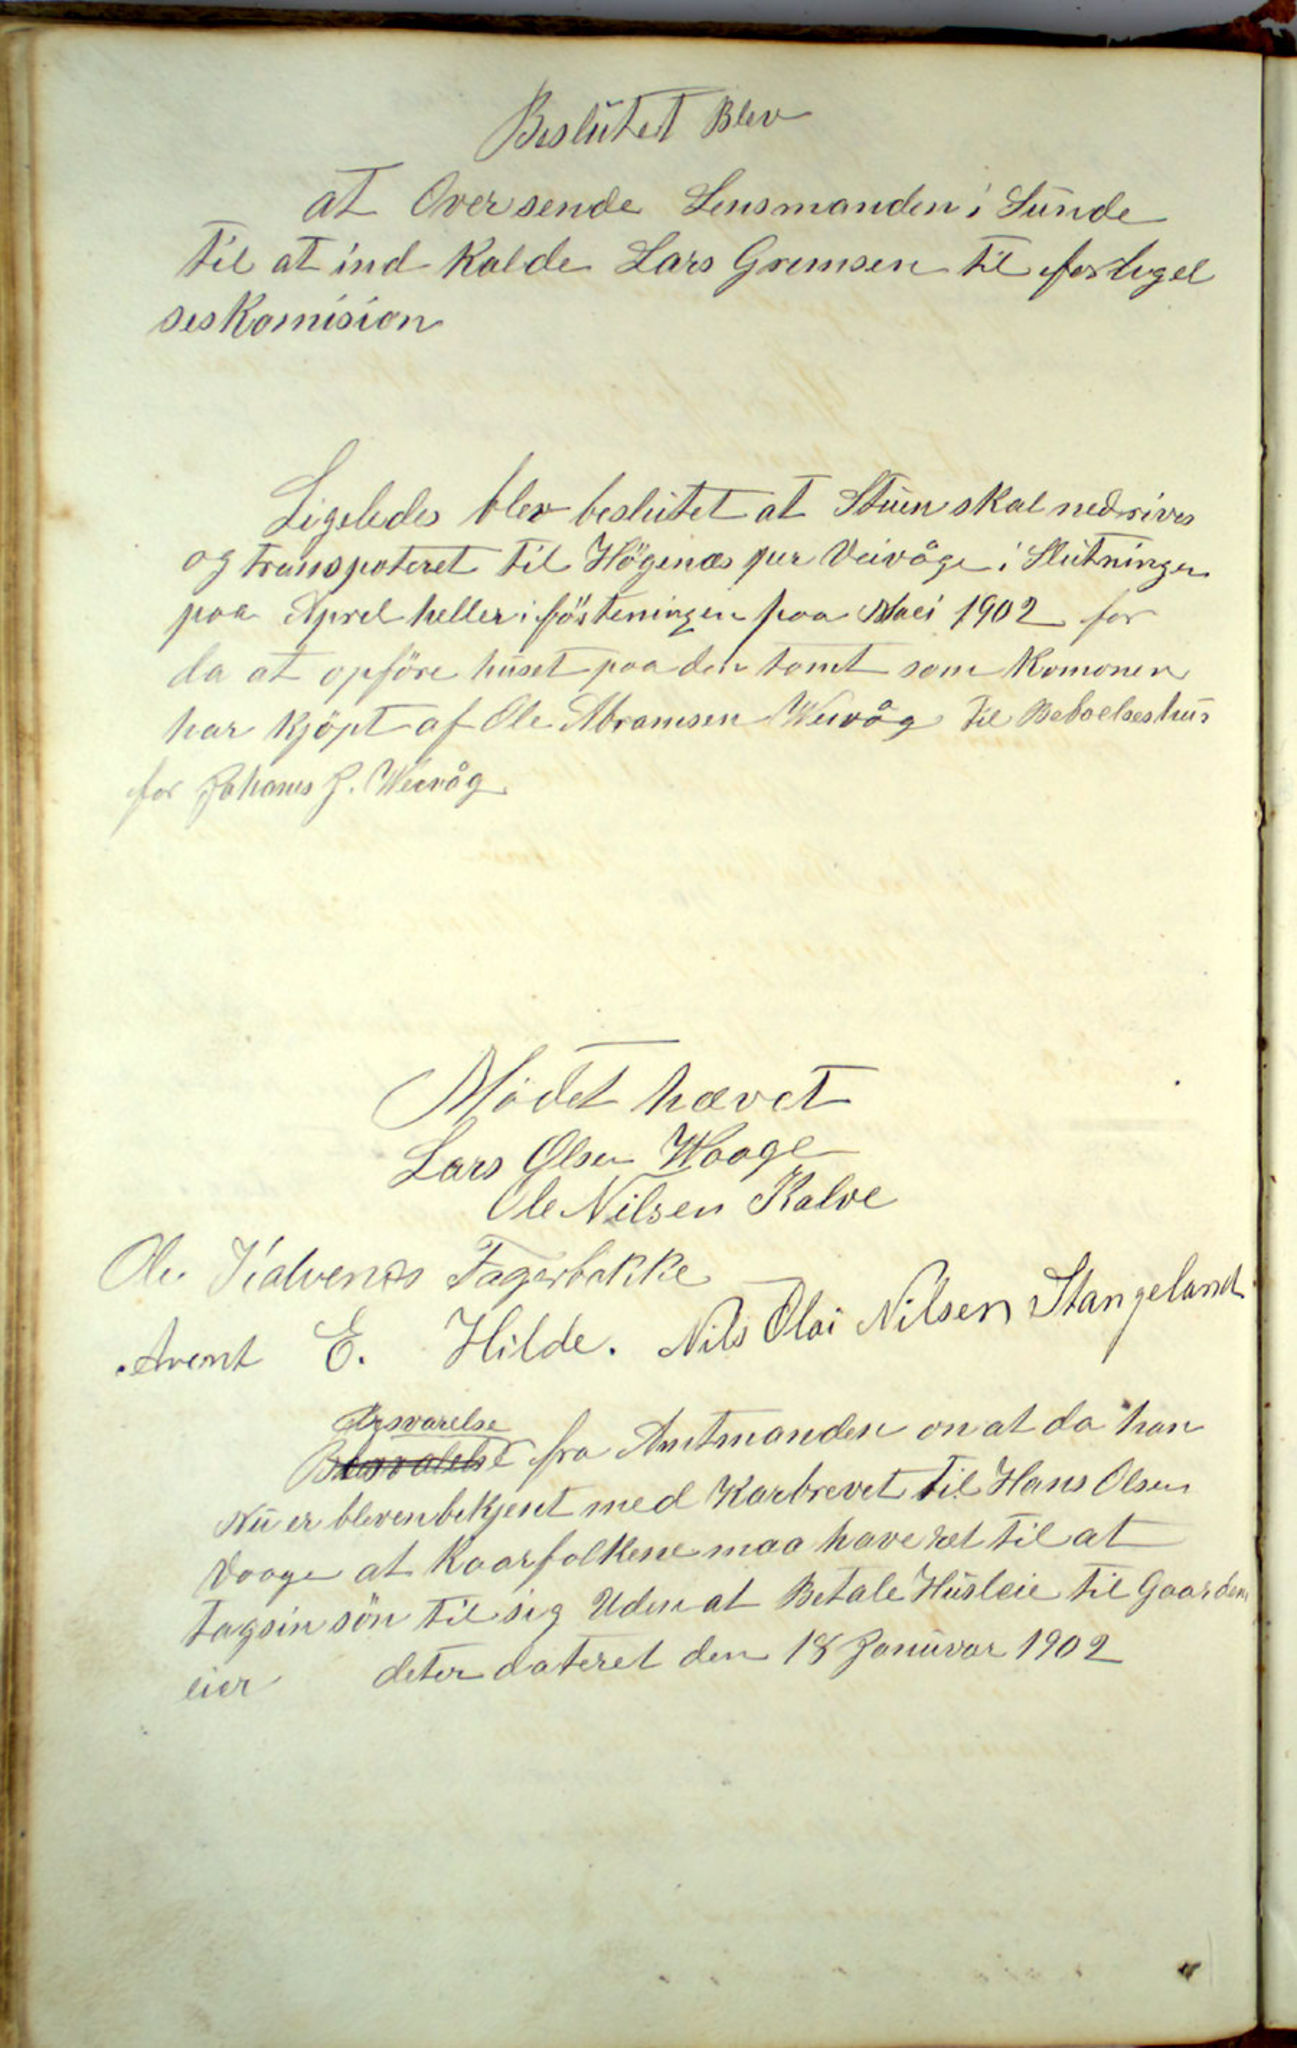 Beslutet Blev
at Oversende Lensmanden i Sunde
til at ind kalde Lars Gremsen til forligel
seskomision
Ligeledes blev beslutet at Stuen skal nedrives
og transpoteret til Högenæs per Veivåge i Slutningen
paa Aprel heller i försteningen paa Maei 1902 for
da at opföre huset paa den tomt som Komonen
har kjöpt af Ole Abramsen Weivåg til Beboelseshus
for Johanes J. Weivåg
Mödet hævet
Lars Olsen Waage
Ole Nilsen Kalve
Ole Kalvenes Fagerbakke
Arent E. Hilde. Nils Olai Nilsen Stangeland
Ersvarelse
fra Amtmanden om at da han
Nu er bleven bekjent med Karbrevet til Hans Olsen
Vaage at Kaarfolkene maa have ret til at
tagsin sön til sig Uden at Betale Husleie til Gaardens
eier deter dateret den 18 Januvar 1902